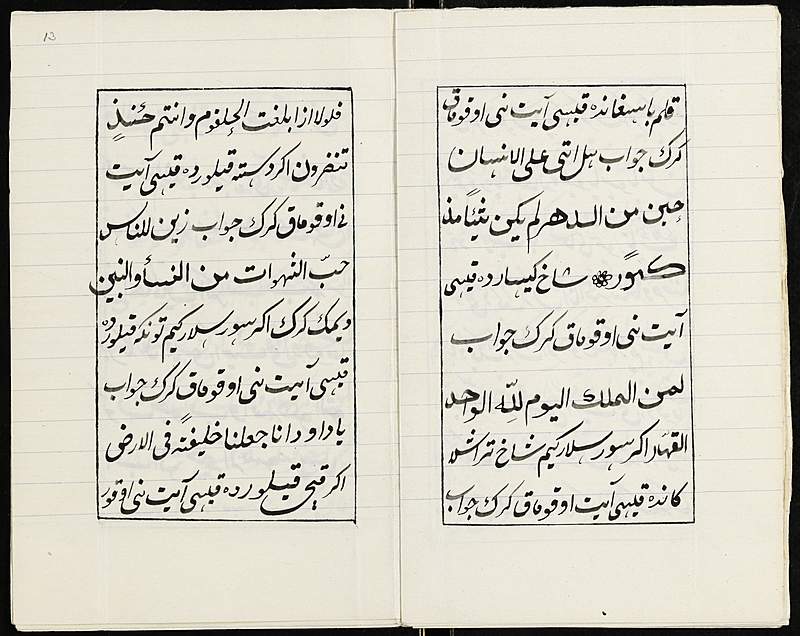 قلم باسغانده قیسی آیت نی اوقوماق
کرک جواب هل اتی علی الانسان
حین من الدهر لم یکن شیئاً مذ
کوراً شاخ کیسارده قیسی
آیت نی اوقوماق کرک جواب
لمن الملك الیوم للّٰه الواحد
القهار اکر سورسلار کیم شاخ تراشلا
کانده قیسی آیت اوقوماق کرک جواب
13
فلولا ازا بلغت الحلقوم وانتم حئنذٍ
تنظرون اکر دسته قیلورده قیسی آیت
نی اوقوماق کرک جواب زین للناس
حبّ الشهوات من النسأ والنبین
دیمک کرک اکر سورسلار کیم تونکه قیلورده
قیسی آیت نی اوقوماق کرک جواب
یاداود انا جعلنا خلیفةً فی الارض
اکر قیچی قیلورده قیسی آیت نی اوقور